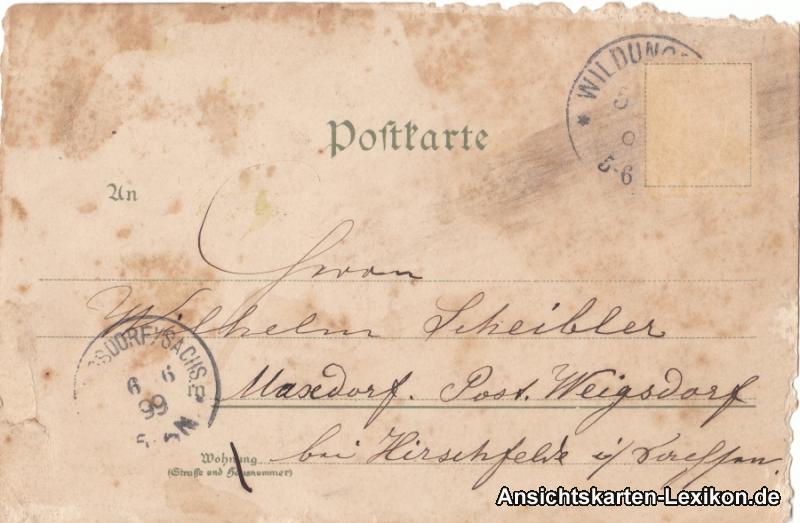 Postkarte
* WILDUNG
5-6
An
Herrn
Wilhelm Scheibler
Maxdorf. Post. Weigsdorf
bei Hirschfelde i/ Sachsen.
SDORF SACHS.
6 6
99
Wohnung
(Straße und Hausnummer)
Ansichtskarten-Lexikon.de